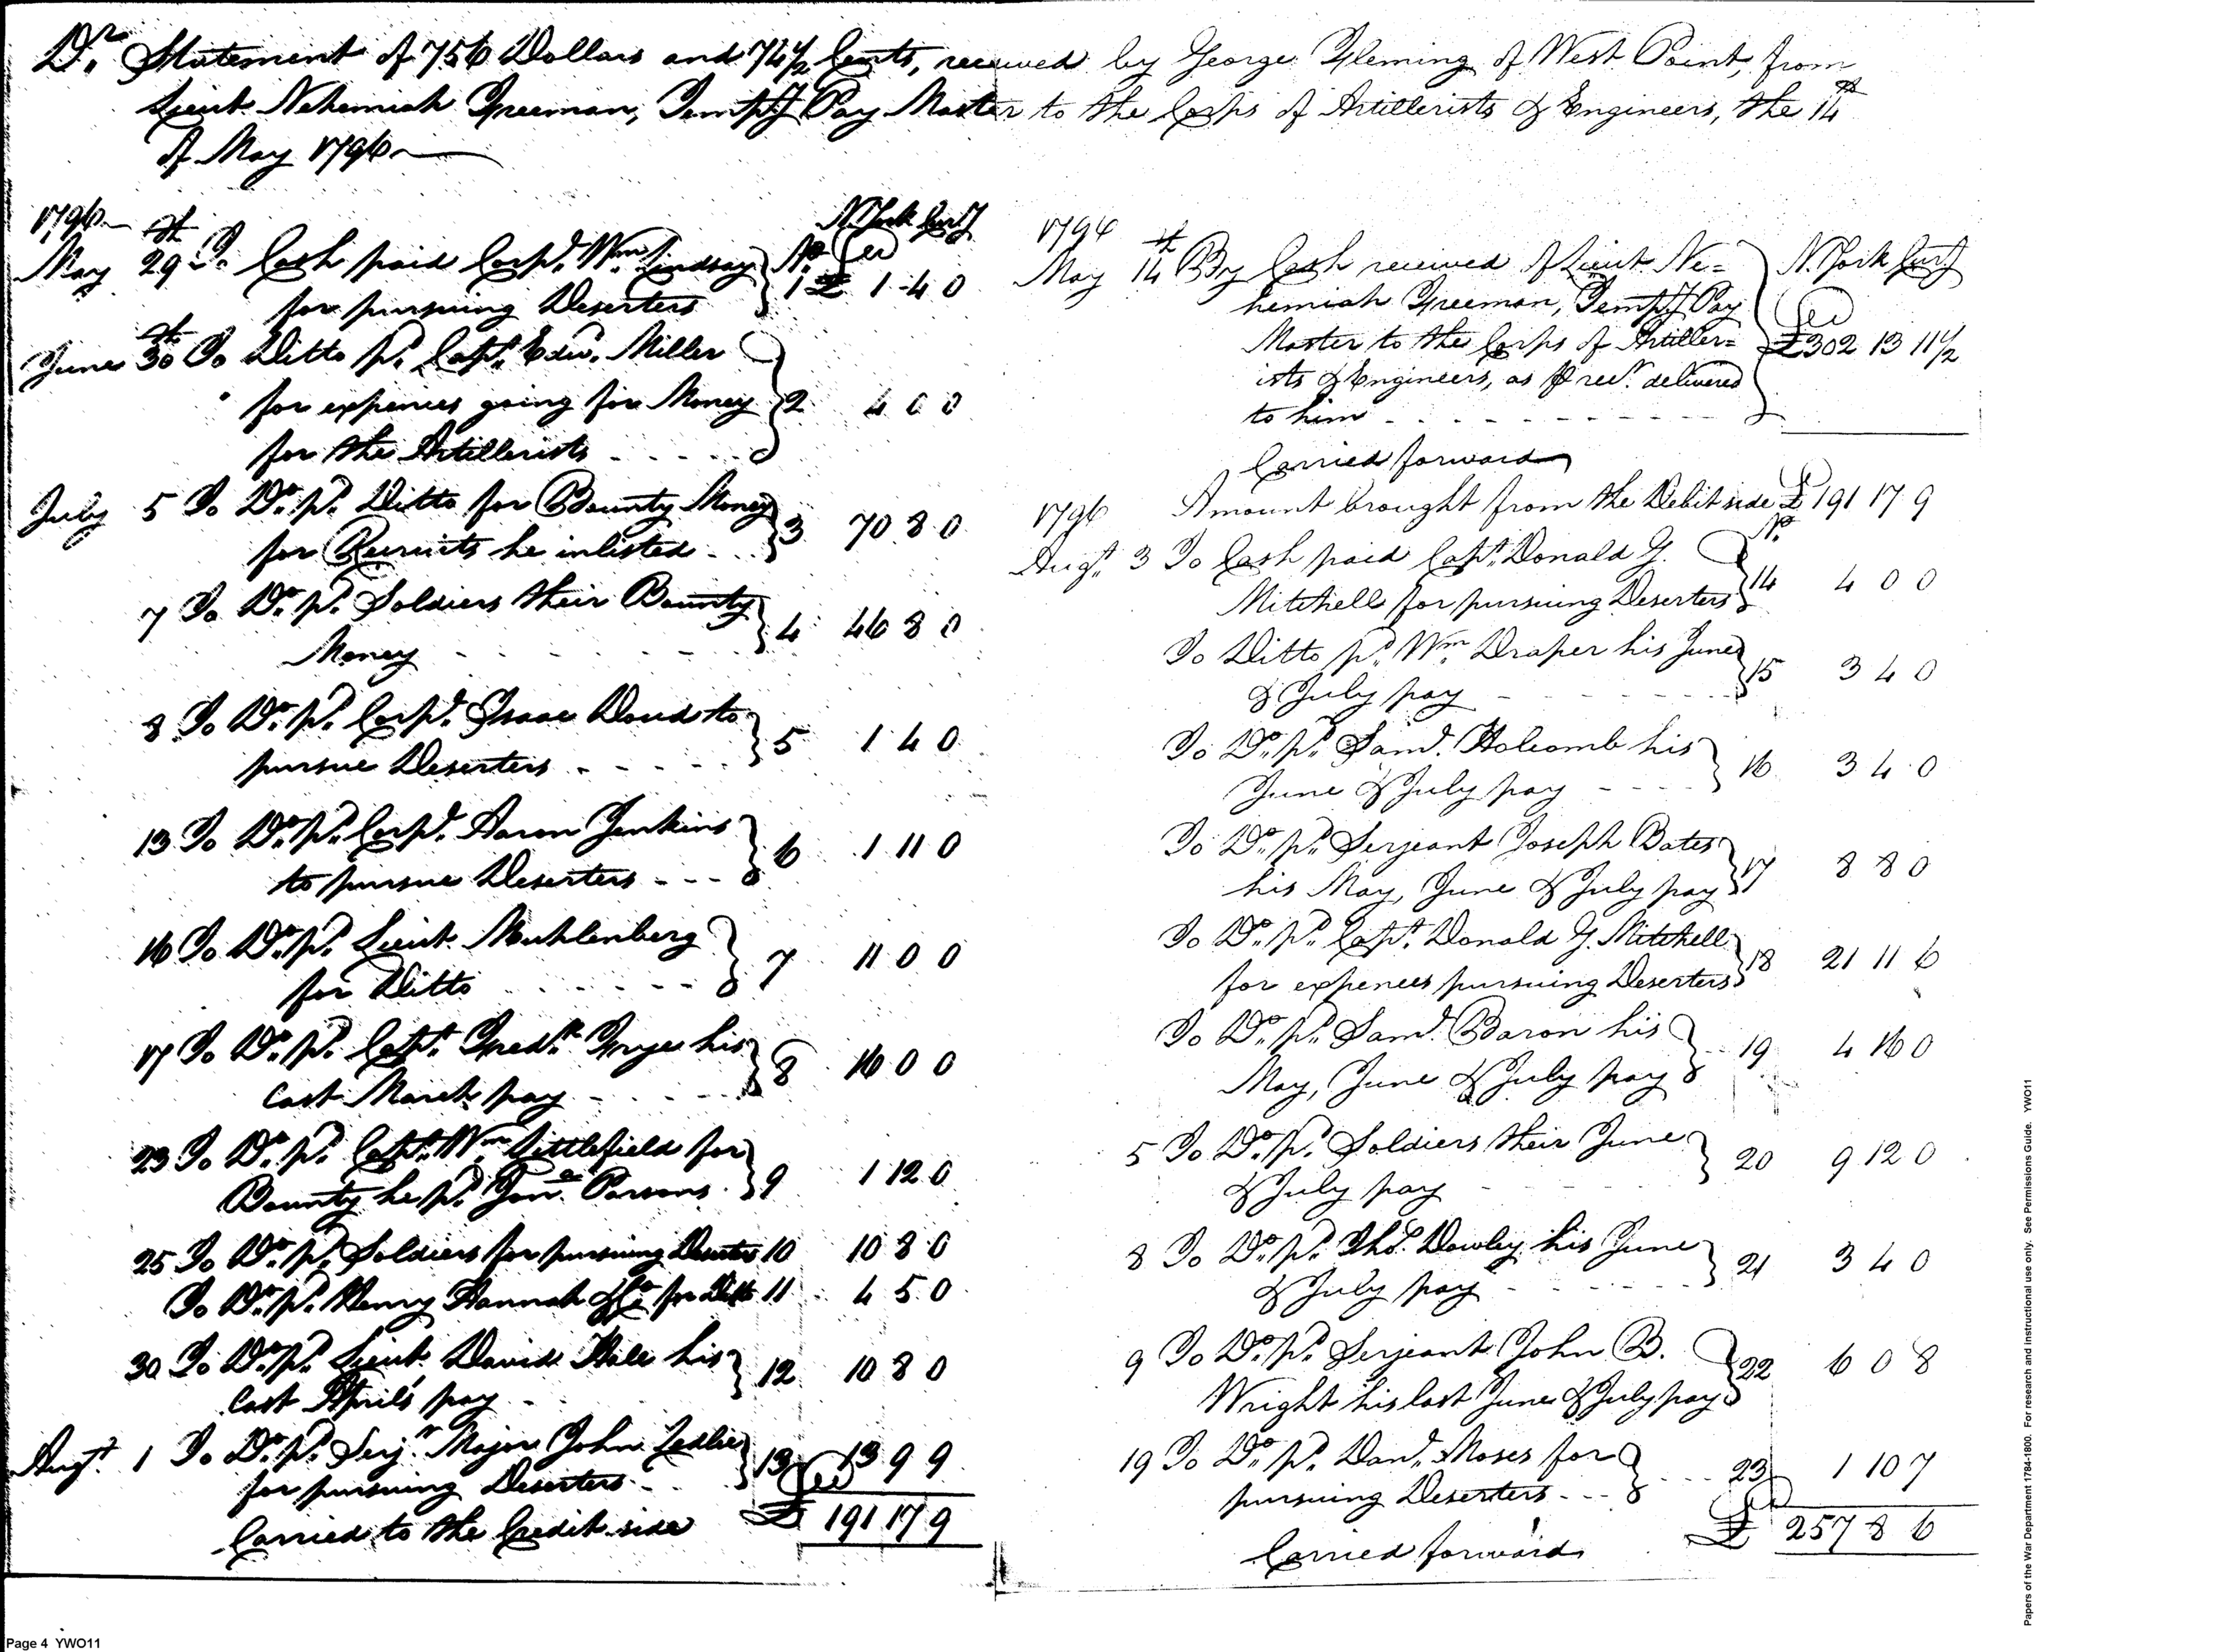 Dr. Statement of 756 Dollars and 74½ Cents, received by George Fleming of West Point, from
Lieut. Nehemiah Freeman, Temp'y Pay Master to the Corps of Artillerists & Engineers, the 14th
of May 1796
1796
N. York Curr'y
May 29th To Cash paid Corpl. Wm. Lindsay No. 1 £ 1 4 0
for pursuing Deserters
June 30th To Ditto pd. Capt. Edw. Miller
for expences going for Money 2 4 0 0
for the Artillerists
July 5 To Do. pd. Ditto for Bounty Money
for Recruits he inlisted 3 70 8 0
7 To Do. pd. Soldiers their Bounty
Money 4 46 8 0
8 To Do. pd. Corpl. Isaac Doud to
pursue Deserters 5 1 4 0
13 To Do. pd. Corpl. Aaron Jenkins
to pursue Deserters 6 1 11 0
16 To Do. pd. Lieut. Muhlenberg
for Ditto 7 11 0 0
17 To Do. pd. Capt. Fredk. Frye his
last March pay 8 16 0 0
23 To Do. pd. Capt. Wm. Littlefield for
Bounty he pd. Jona. Parsons 9 1 12 0
25 To Do. pd. Soldiers for pursuing Deserters 10 10 8 0
To Do. pd. Henry Hannah & Co. for Ditto 11 4 5 0
30 To Do. pd. Lieut. David Hale his
last April's pay 12 10 8 0
Augt. 1 To Do. pd. Serjt. Major John Ledlie
for pursuing Deserters 13 13 9 9
Carried to the Credit side £ 191 17 9
1796
May 14th By Cash received of Lieut. Ne=
N. York Curr'y
hemiah Freeman, Temp'y Pay
Master to the Corps of Artiller= £302 13 11½
ists & Engineers, as pr rect. delivered
to him
Carried forward
1796 Amount brought from the Debit side £ 191 17 9
No.
Augt. 3 To Cash paid Capt. Donald G.
Mitchell for pursuing Deserters 14 4 0 0
To Ditto pd. Wm. Draper his June
& July pay 15 3 4 0
To Do. pd. Saml. Holcomb his
June & July pay 16 3 4 0
To Do. pd. Serjeant Joseph Bates
his May, June & July pay 17 8 8 0
To Do. pd. Capt. Donald G. Mitchell
for expences pursuing Deserters 18 21 11 6
To Do. pd. Saml. Baron his
May, June & July pay 19 4 16 0
5 To Do. pd. Soldiers their June
& July pay 20 9 12 0
8 To Do. pd. Thos. Dowley his June
& July pay 21 3 4 0
9 To Do. pd. Serjeant John B.
Wright his last June & July pay 22 6 0 8
19 To Do. pd. Danl. Moses for
pursuing Deserters 23 1 10 7
Carried forward £ 257 8 6
Papers of the War Department 1784-1800. For research and instructional use only. See Permissions Guide. YWO11
Page 4 YWO11